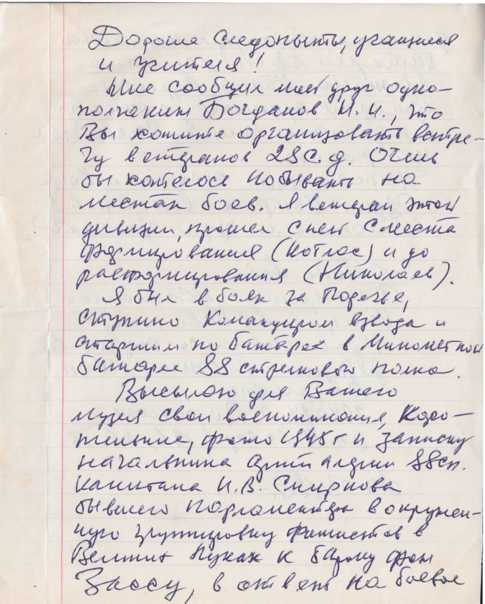 Дорогие следопыты, учащиеся
и учителя!
Мне сообщил мой друг одно-
полчанин Богданов И. И., что
Вы хотите организовать встре-
чу ветеранов 28 с.д. Очень
бы хотелось побывать на
местах боев. Я ветеран этой
дивизии, прошел с ней с места
формирования (Котлас) и до
расформирования (Николаев).
Я был в боях за Поречье,
Ступино командиром взвода и
старшим по батарее в минометной
батарее 88 стрелкового полка.
Высылаю для Вашего
музея свои воспоминания, коро-
тенькие, фото 1945 г и записку
начальника артиллерии 88сп.
капитана И. В. Смирнова
бывшего парламентера в окружен-
ную группировку фашистов в
Великих Луках к барону фон
Зассу, в ответ на боевое